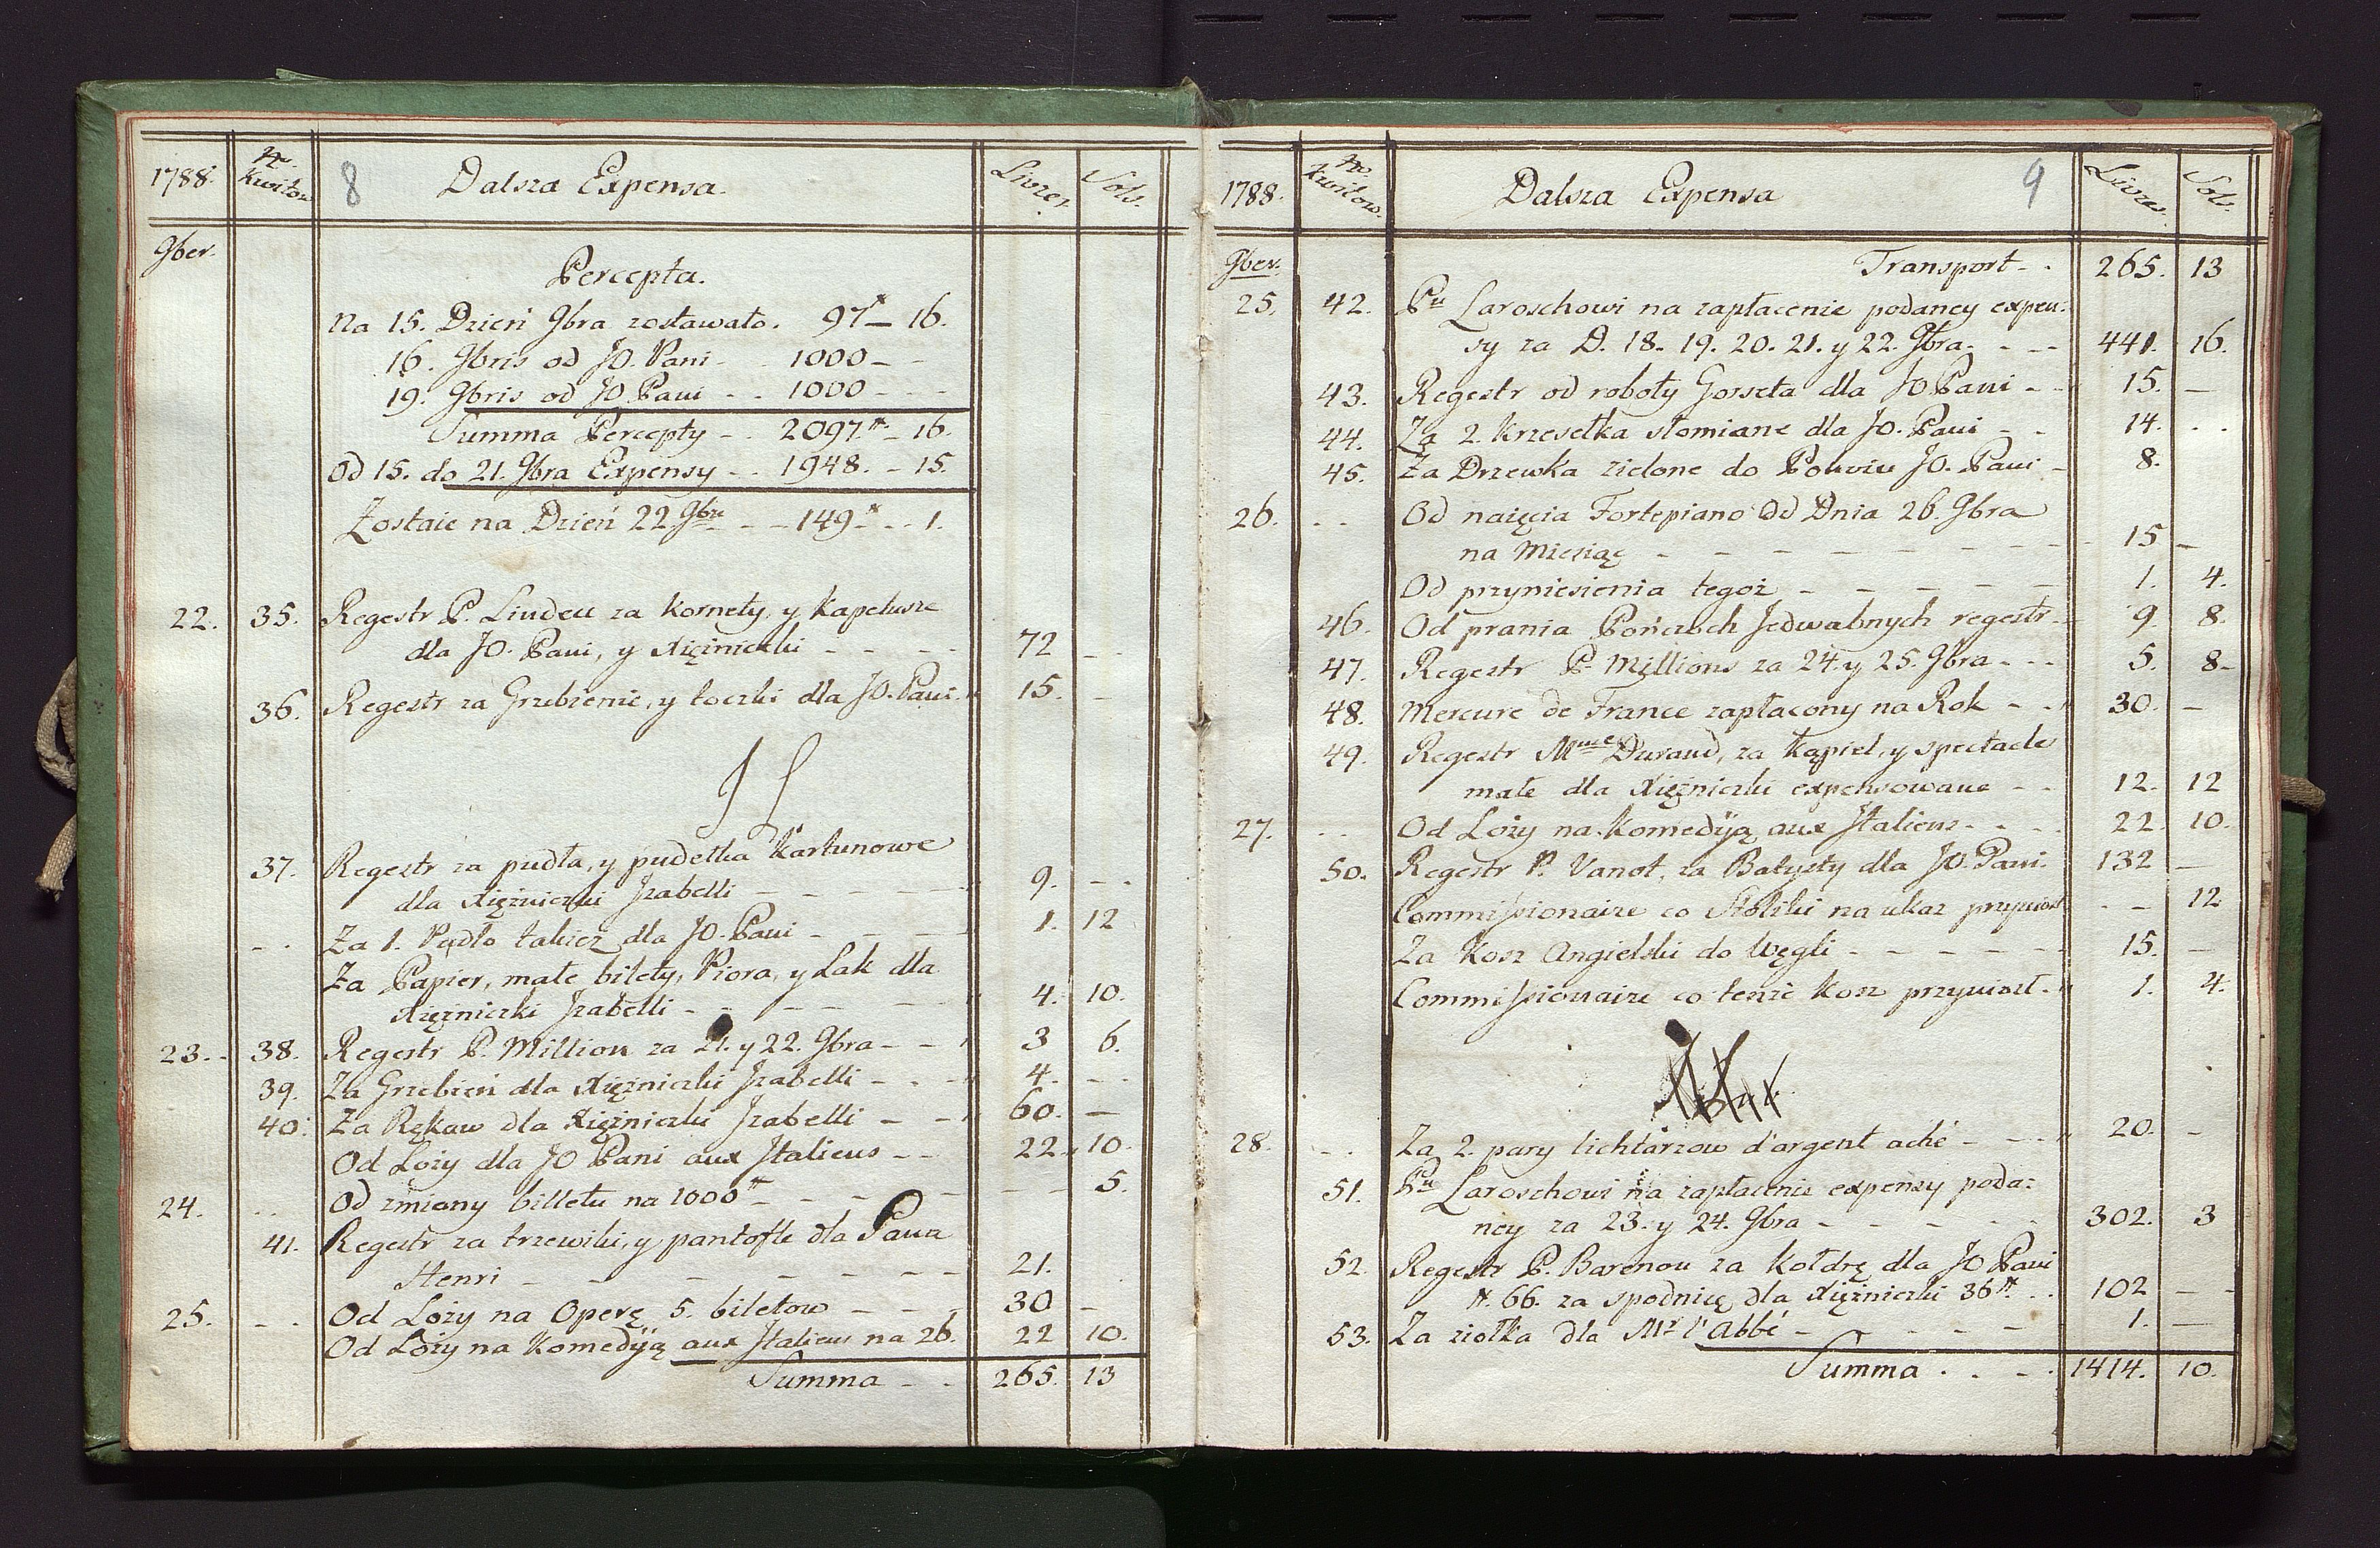 1788. N. Kwitow 8 Dalsza Expensa. Livres. Sols.
9ber.
Percepta.
Na 15. Dzień 9bra zostawało. 97 – 16.
16. 9bris od JO. Pani – 1000 –
19. 9bris od JO. Pani – – 1000 – – –
Summa Percepty – – 2097.tt – 16.
Od 15. do 21. 9bra Expensy – – 1948. – 15.
Zostaie na Dzień 22 9bra – – 149 – – 1.
22. 35. Regestr P. Lindeu za Kornety, y Kapelusze
dla JO. Pani, y Xiężniczki – – – – 72 – –
36. Regestr za Grzebienie, y loczki dla JO. Pani. 15. –
37. Regestr za pudła, y pudełka Kartunowe
dla Xiężniczki Izabelli – – – – – 9. – –
– – Za 1. Pudło takież dla JO. Pani – – – – 1. 12
Za Papier, małe bilety, Piora, y Lak dla
Xiężniczki Izabelli – – – – – 4. 10.
23. – 38. Regestr P. Million za 21. y 22. 9bra – – 3 6.
39. Za Grzebień dla Xiężniczki Izabelli – – – 4. – –
40. Za Rękaw dla Xiężniczki Izabelli – – 60. –
Od Loży dla JO Pani aux Italiens – – 22. 10.
24. – – Od zmiany billetu na 1000tt – – – – – – 5.
41. Regestr za trzewiki, y pantofle dla Pana
Henri – – – – – – – 21.
25. – – Od Loży na Operę 5. biletow – – – 30 –
Od Loży na Komedyją aux Italiens na 26. 22 10.
Summa – – 265. 13
1788. N. Kwitow. Dalsza Expensa 9 Livres. Sols.
9ber. Transport – – 265. 13
25. 42. Pu Laroschowi na zapłacenie podaney expen:
sy za D. 18. 19. 20. 21. y 22. 9bra. – – – 441. 16.
43. Regestr od roboty Gorseta dla JO Pani – – 15. –
44. Za 2. krzesełka słomiane dla JO. Pani – – 14. – –
45. Za Drzewka zielone do Pokoiu JO. Pani – 8.
26. – – Od naięcia Fortepiano od Dnia 26 9bra
na Miesiąc – – – – – – – – 15 –
Od przyniesienia tegoż – – – – – 1. 4.
46. Od prania Pończoch Jedwabnych regestr – 9. 8.
47. Regestr P. Millions za 24. y 25. 9bra – – – 5. 8 –
48. Mercure de France zapłacony na Rok – – 30. –
49. Regestr Mme Durand, za kąpiel, y spectacle
małe dla Xiężniczki expensowane – – 12. 12
27. – – Od Loży na Komedyją aux Italiens – – – 22. 10.
50. Regestr P. Vanot, za Batysty dla JO. Pani. 132 –
Commissionaire co Stoliki na ukaz przyniosł – – 12
Za Kosz Angielski do Węgli – – – – – – 15. –
Commissionaire co tenże Kosz przyniosł – 1. 4.
28. – – Za 2. pary lichtarzow d'argent aché – – – 20. –
51. Pu Laroschowi na zapłacenie expensy poda:
ney za 23. y 24. 9bra – – – – – 302. 3
52. Regestr P. Barenou za kołdrę dla JO Pani
tt. 66. za spodnicę dla Xiężniczki 36tt – – 102 – –
53. Za ziołka dla Mr l'Abbé – – – – – 1. –
Summa – – – 1414. 10.